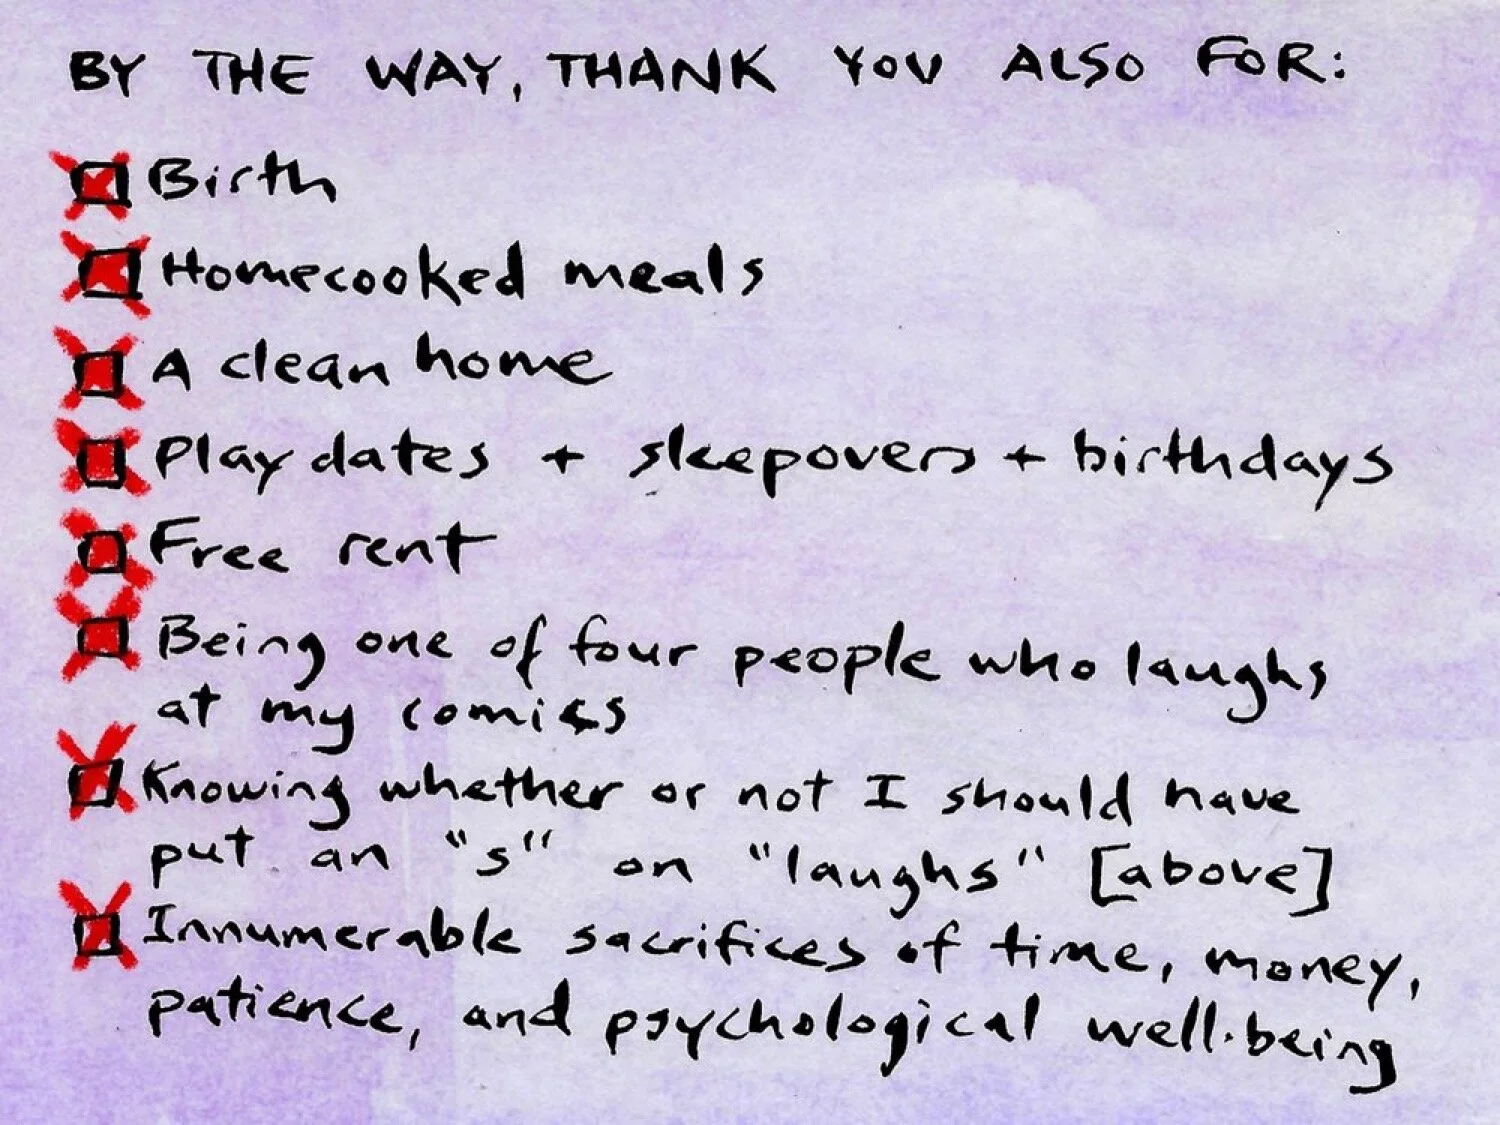 BY THE WAY, THANK YOU ALSO FOR:
Birth
Homecooked meals
A clean home
Play dates + sleepovers + birthdays
Free rent
Being one of four people who laughs
at my comics
Knowing whether or not I should have
put an "s" on "laughs" [above]
Innumerable sacrifices of time, money,
patience, and psychological well-being